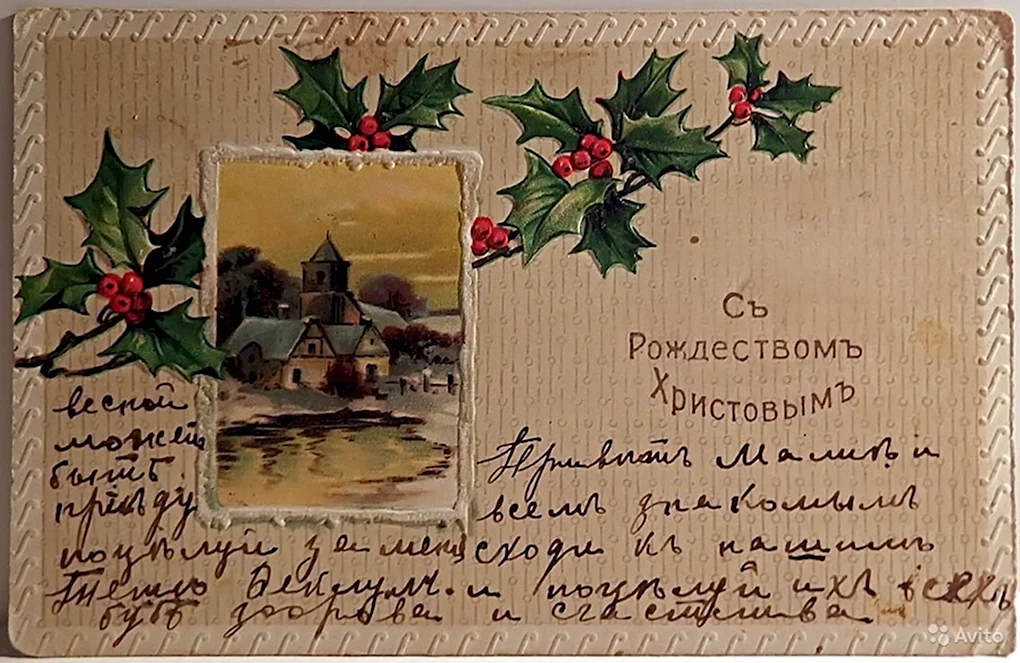 Съ
Рождествомъ
Христовымъ
весной
можетъ
быть
прiѣду
Привѣтъ Малинѣ и
всемъ знакомымъ
поцѣлуй за меня сходи къ нашимъ
и поцѣлуй ихъ всехъ
будь здорова и счастлива
Avito